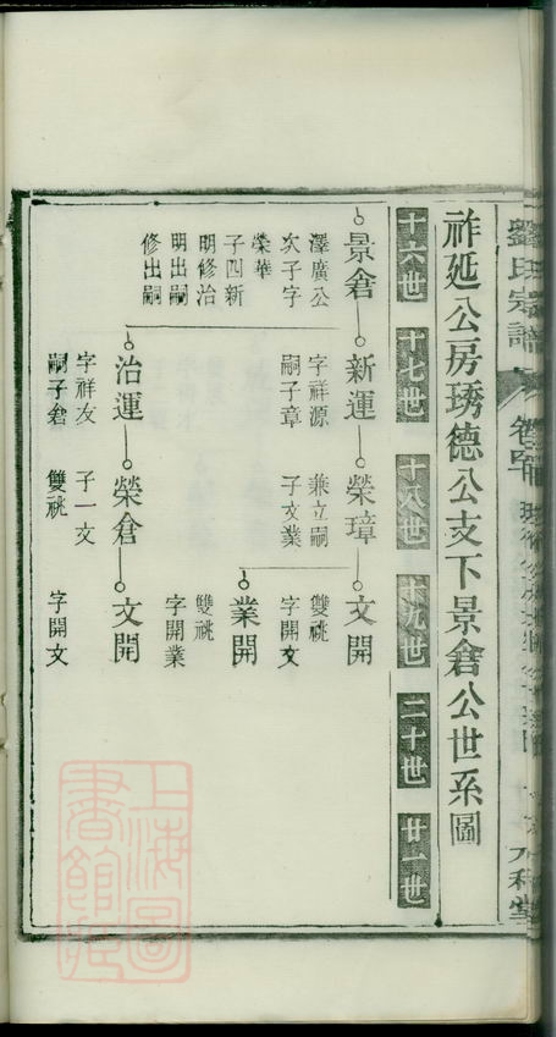 劉氏宗譜
祚延公房琇德公支下景倉公世系圖
十六世 十七世 十八世 十九世 二十世 廿一世
景倉
澤廣公
次子字
榮華
子四新
明修治
明出嗣
修出嗣
新運
字祥源
嗣子章
榮璋
兼立嗣
子文業
文開
雙祧
字開文
業開
雙祧
字開業
治運
字祥友
嗣子倉
榮倉
子一文
雙祧
文開
字開文
上海圖
書館藏